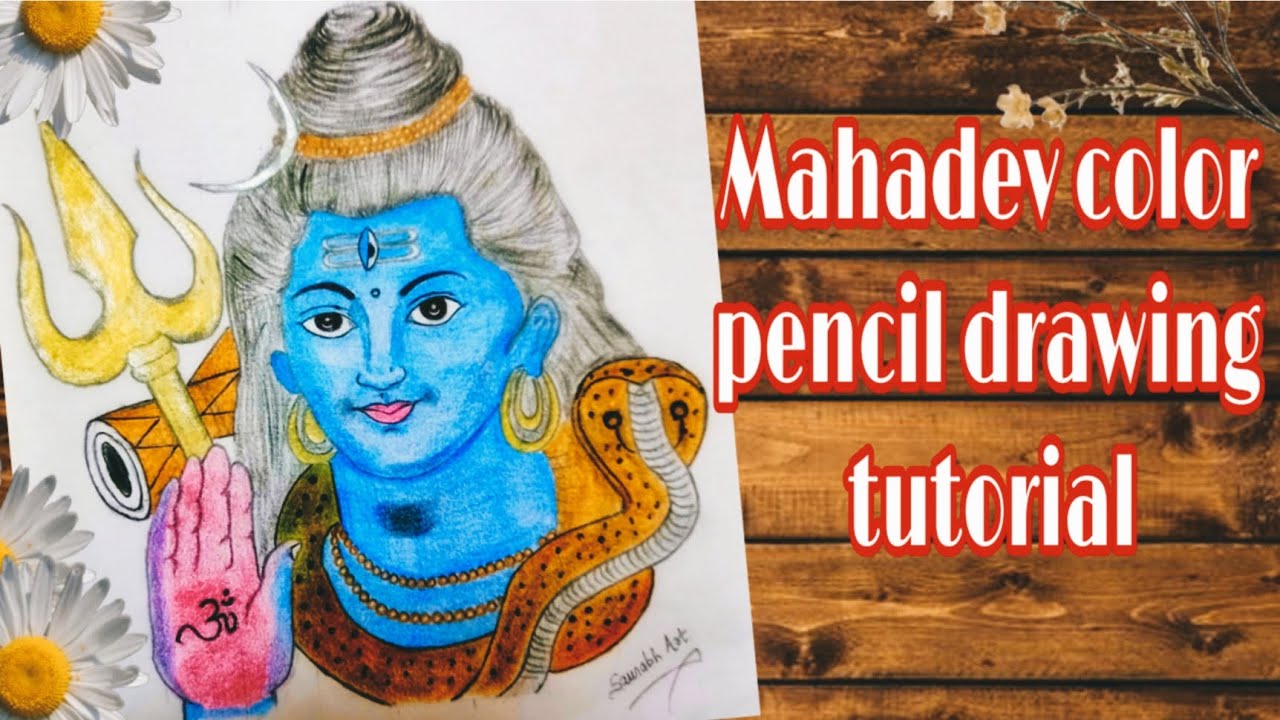 Mahadev color
pencil drawing
tutorial
ॐ
Saurabh Art